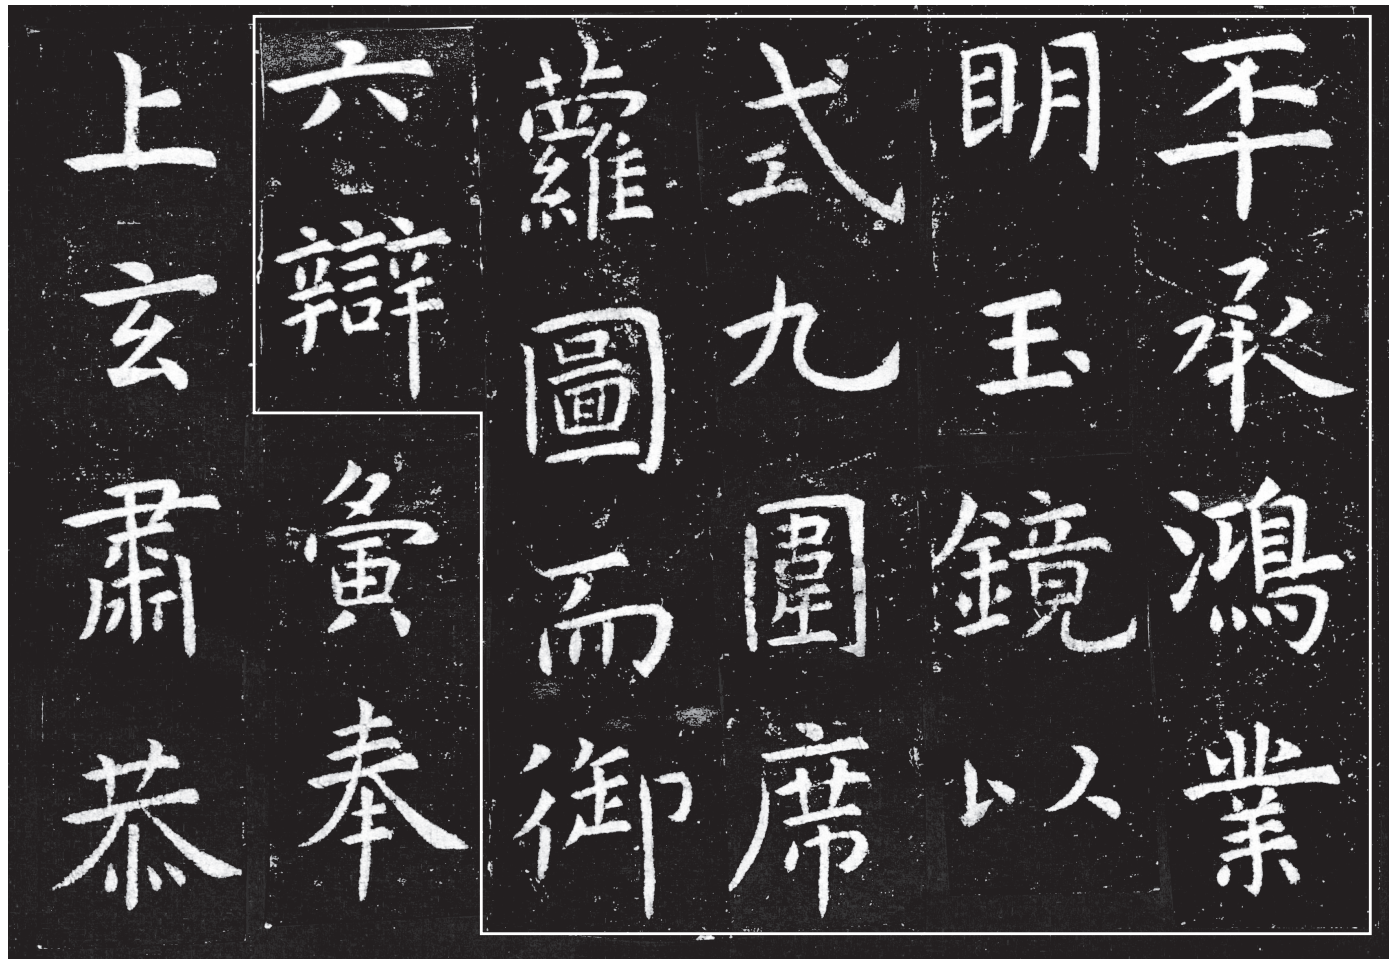 丕承鴻業
眀玉鏡以
式九圍席
蘿圖而御
六辯夤奉
上玄肅恭